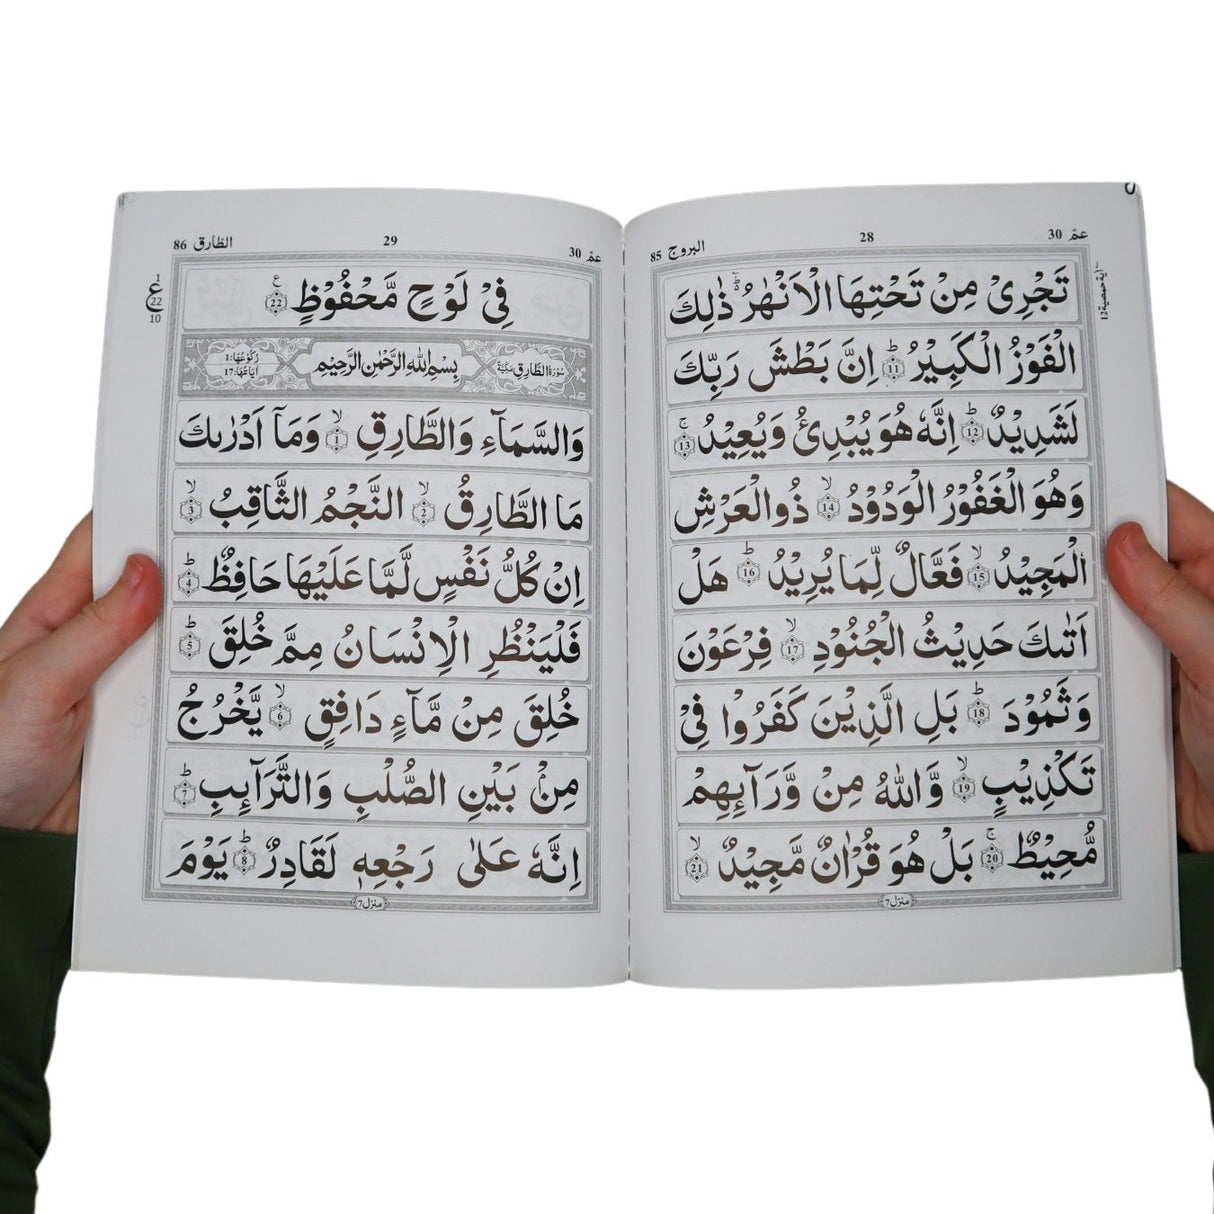 عمّ 30
28
البروج 85
تَجْرِیْ مِنْ تَحْتِهَا الْاَنْهٰرُ ؕ۬ ذٰلِكَ
الْفَوْزُ الْكَبِیْرُ ؕ 11 اِنَّ بَطْشَ رَبِّكَ
لَشَدِیْدٌ ؕ 12 اِنَّهٗ هُوَ یُبْدِئُ وَ یُعِیْدُ ۚ 13
وَ هُوَ الْغَفُوْرُ الْوَدُوْدُ ۙ 14 ذُو الْعَرْشِ
الْمَجِیْدُ ۙ 15 فَعَّالٌ لِّمَا یُرِیْدُ ؕ 16 هَلْ
اَتٰىكَ حَدِیْثُ الْجُنُوْدِ ۙ 17 فِرْعَوْنَ
وَ ثَمُوْدَ ؕ 18 بَلِ الَّذِیْنَ كَفَرُوْا فِیْ
تَكْذِیْبٍ ۙ 19 وَّ اللّٰهُ مِنْ وَّرَآىِٕهِمْ
مُّحِیْطٌ ۚ 20 بَلْ هُوَ قُرْاٰنٌ مَّجِیْدٌ ۙ 21
منزل 7
عمّ 30
29
الطارق 86
فِیْ لَوْحٍ مَّحْفُوْظٍ 22 ع
1
ع
22
10
سُوْرَةُ الطَّارِقِ مَكِّیَّةٌ
بِسْمِ اللّٰهِ الرَّحْمٰنِ الرَّحِیْمِ
رُكُوْعُهَا: 1
اٰیَاتُهَا: 17
وَ السَّمَآءِ وَ الطَّارِقِ ۙ 1 وَ مَاۤ اَدْرٰىكَ
مَا الطَّارِقُ ۙ 2 النَّجْمُ الثَّاقِبُ ۙ 3
اِنْ كُلُّ نَفْسٍ لَّمَّا عَلَیْهَا حَافِظٌ ؕ 4
فَلْیَنْظُرِ الْاِنْسَانُ مِمَّ خُلِقَ ؕ 5
خُلِقَ مِنْ مَّآءٍ دَافِقٍ ۙ 6 یَّخْرُجُ
مِنْۢ بَیْنِ الصُّلْبِ وَ التَّرَآىِٕبِ ؕ 7
اِنَّهٗ عَلٰى رَجْعِهٖ لَقَادِرٌ ؕ 8 یَوْمَ
منزل 7